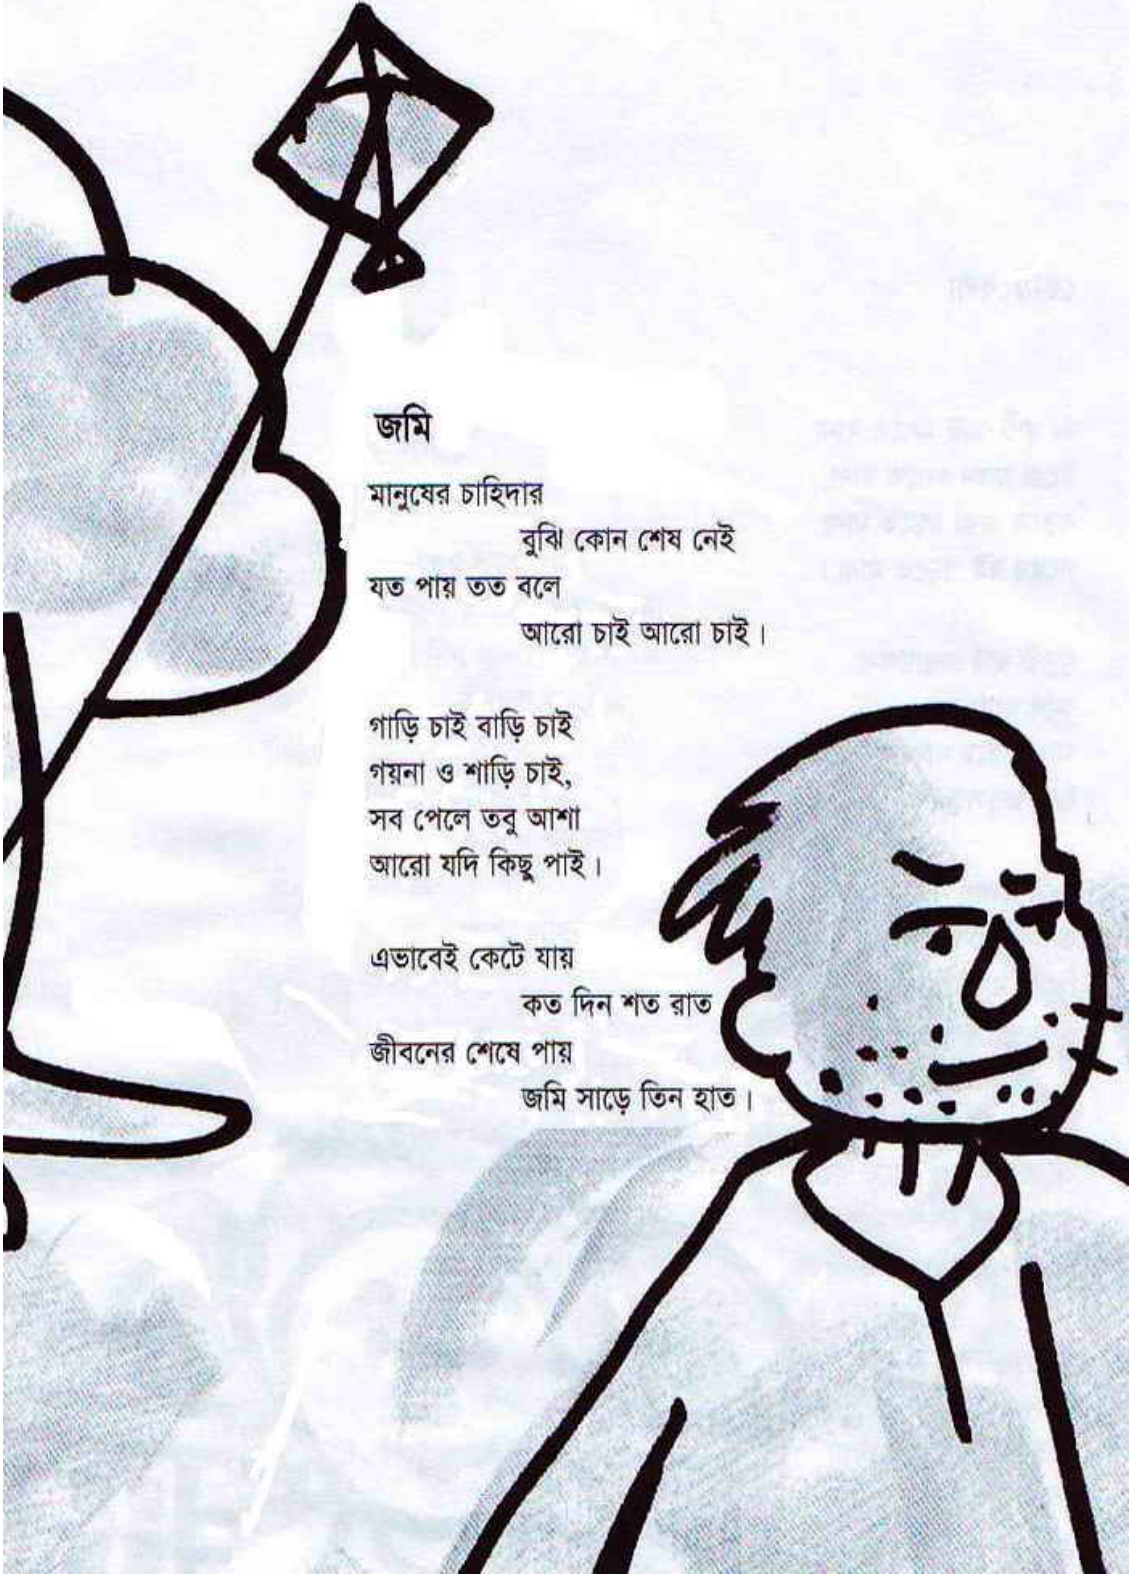 জমি
মানুষের চাহিদার
বুঝি কোন শেষ নেই
যত পায় তত বলে
আরো চাই আরো চাই।
গাড়ি চাই বাড়ি চাই
গয়না ও শাড়ি চাই,
সব পেলে তবু আশা
আরো যদি কিছু পাই।
এভাবেই কেটে যায়
কত দিন শত রাত
জীবনের শেষে পায়
জমি সাড়ে তিন হাত।